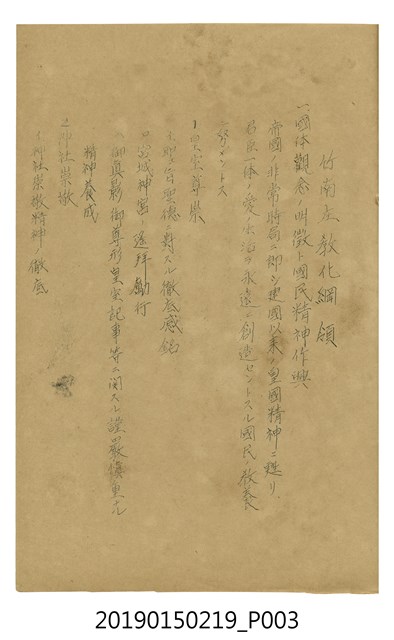 竹南庄教化綱領
一、國体觀念ノ明徴ト國民精神作興
帝國ノ非常時局ニ即シ建國以来ノ皇國精神ニ甦リ
君臣一体ノ愛 永遠ニ創造セントスル國民ノ教養
ントス
1 皇室尊崇
聖德ニ對スル徹底感銘
ロ 宮城神宮ノ遥拜勵行
御真影御尊形皇室記事等ニ関スル謹嚴慎重ナル
精神養成
2 神社崇敬
イ 神社崇敬精神ノ徹底
20190150219_P003